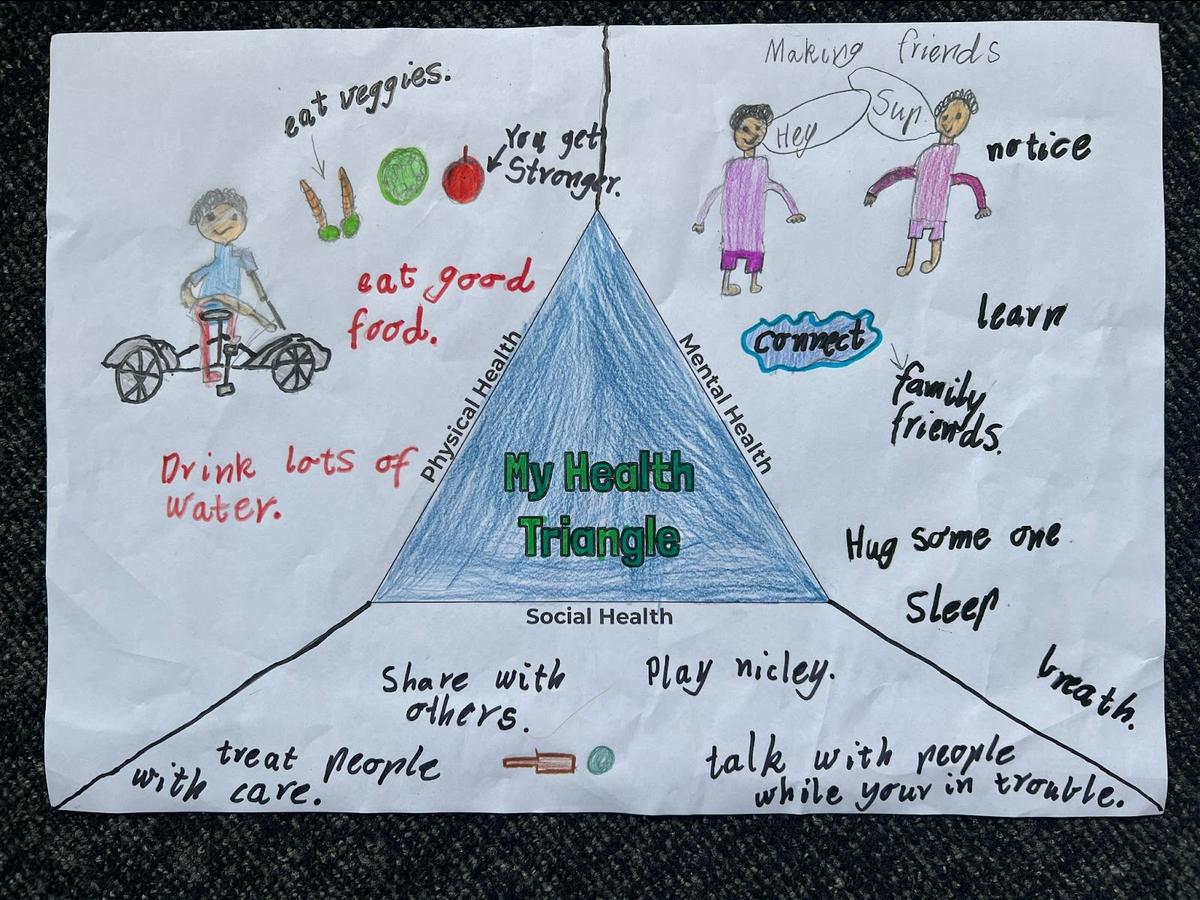 eat veggies.
You get
Stronger.
eat good
food.
Drink lots of
water.
Physical Health
Making friends
Hey
Sup.
notice
learn
connect
family
friends.
Mental Health
Hug some one
Sleep
breath.
My Health
Triangle
Social Health
Share with
others.
Play nicley.
treat people
with care.
talk with people
while your in trouble.